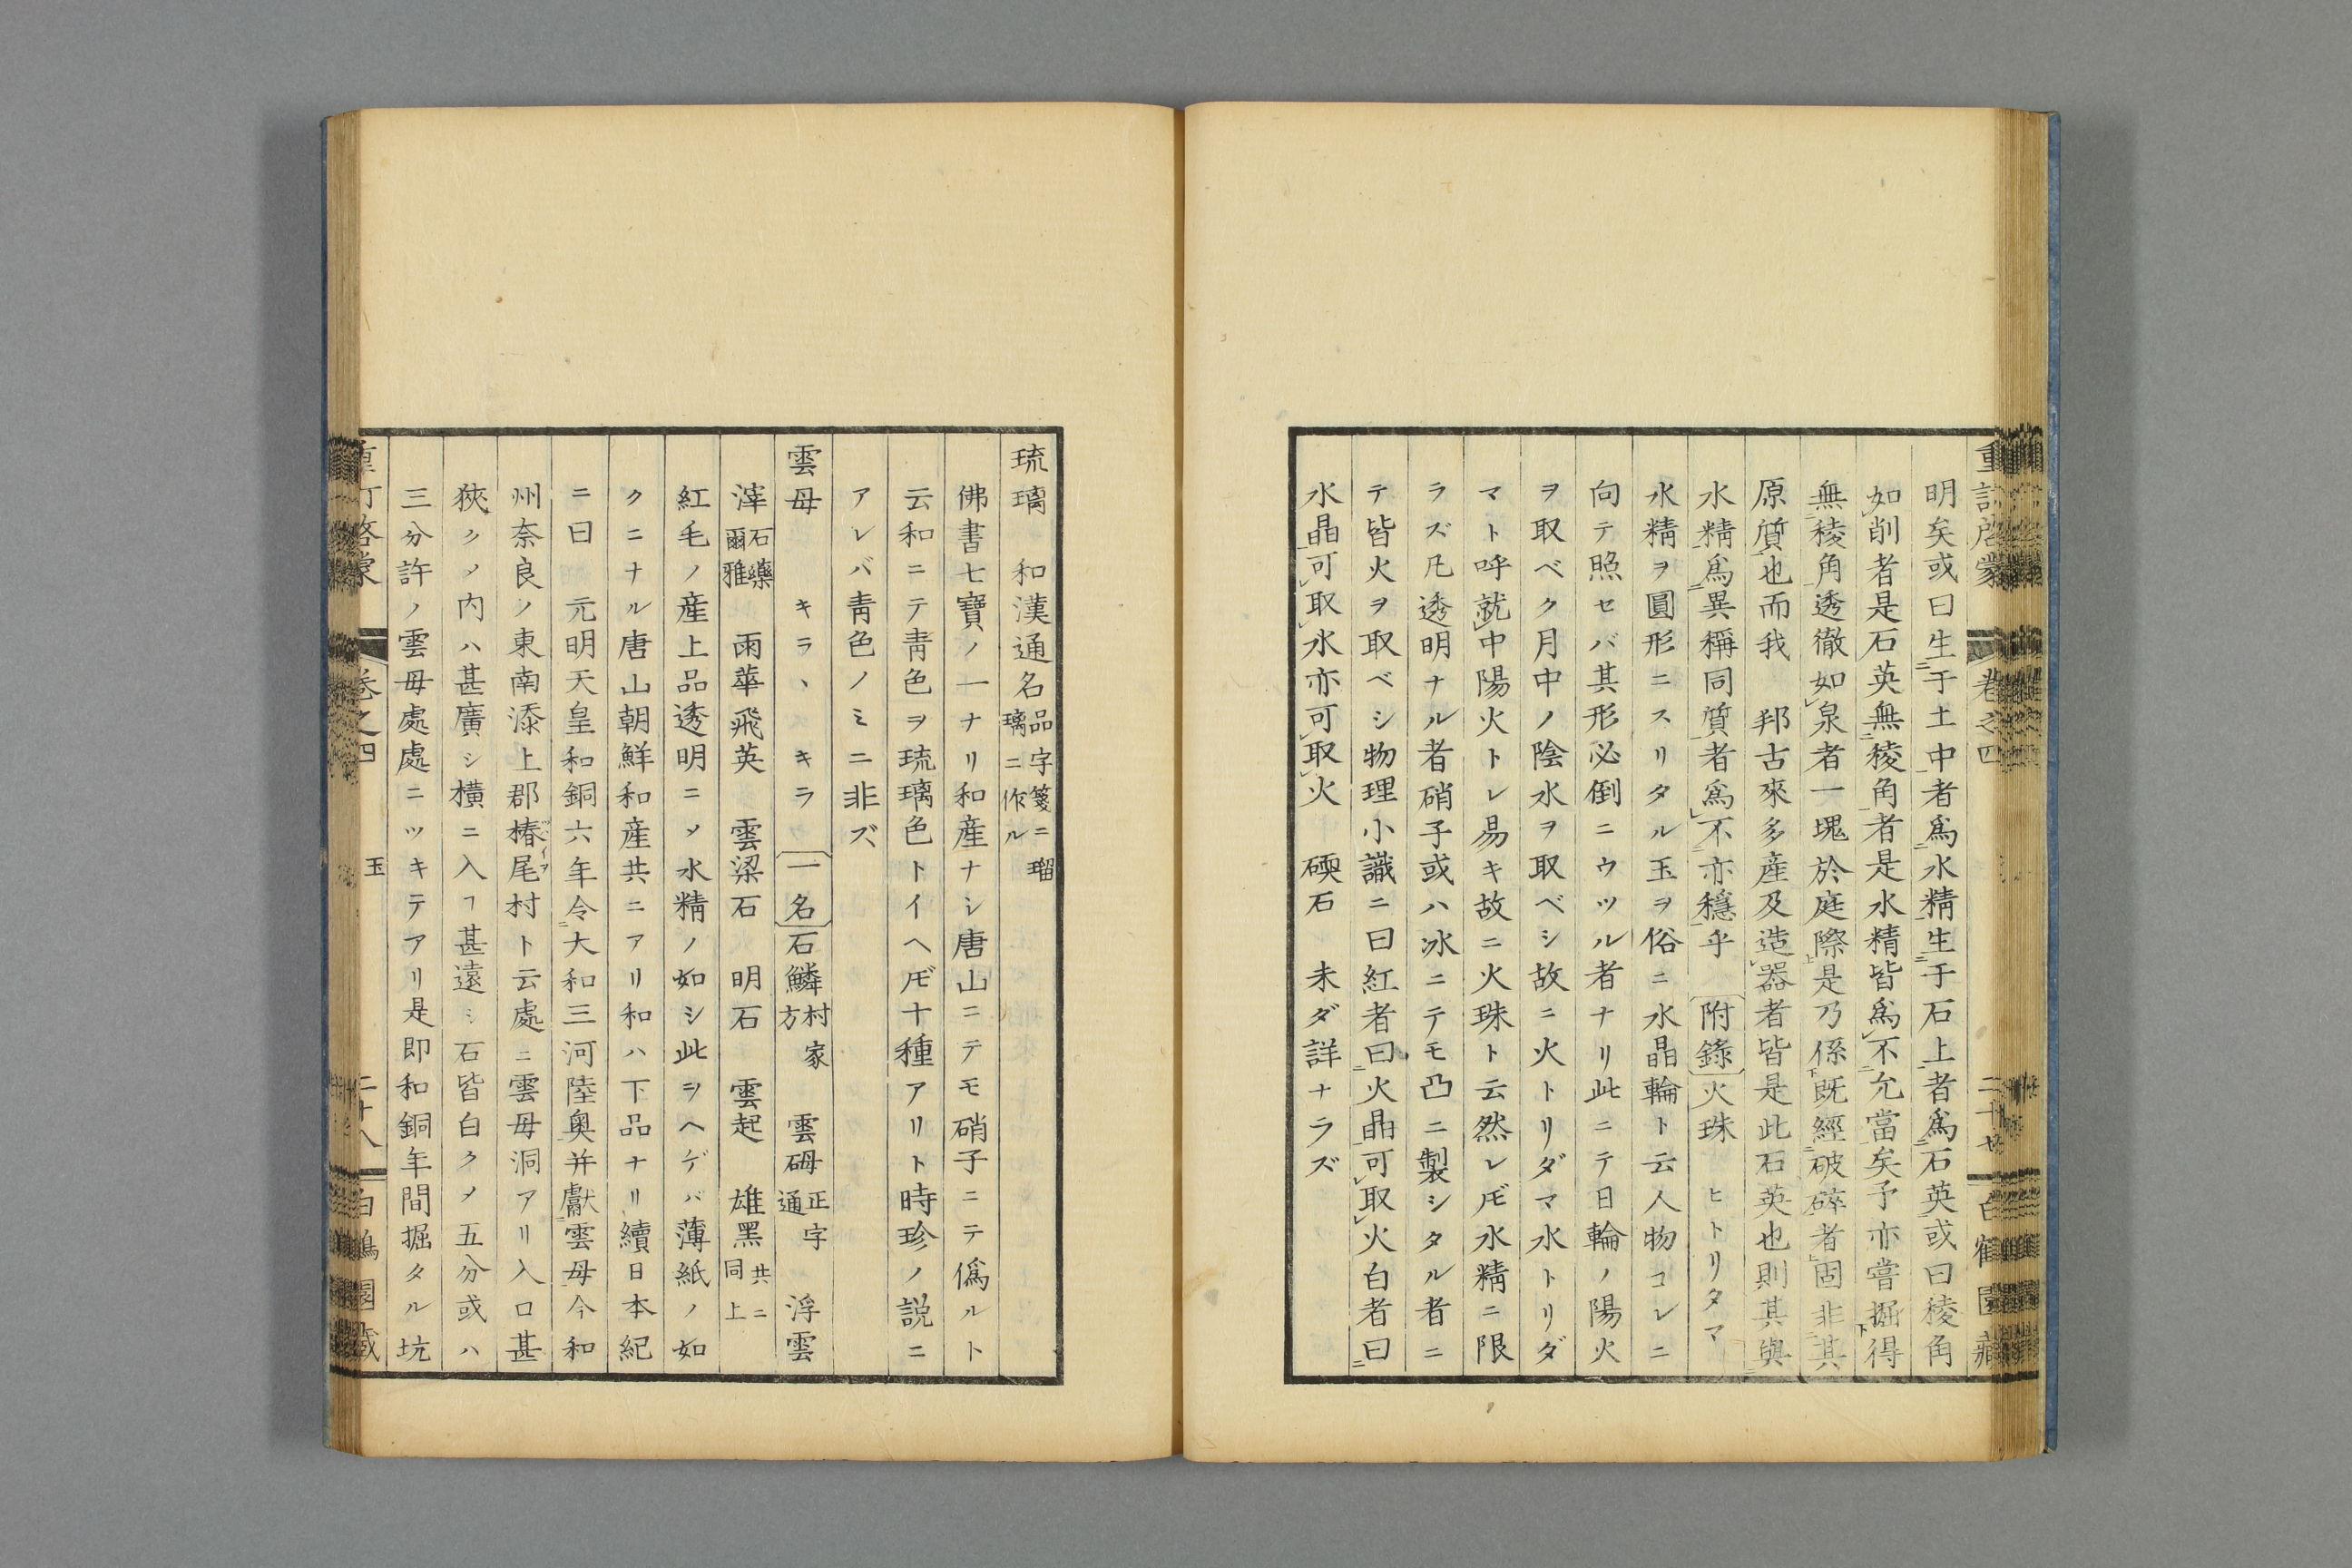 重訂啓蒙 卷之四 二十七 白鶴園藏
明矣或曰生于土中者爲水精生于石上者爲石英或曰稜角
如削者是石英無稜角者是水精皆爲不允當矣予亦嘗掘得
無稜角透徹如泉者一塊於庭際是乃係既經破碎者固非其
原質也而我 邦古來多產及造器者皆是此石英也則其與
水精爲異稱同質者爲不亦穩乎 附錄 火珠 ヒトリタマ
水精ヲ圓形ニスリタル玉ヲ俗ニ水晶輪ト云人物コレニ
向テ照セバ其形必倒ニウツル者ナリ此ニテ日輪ノ陽火
ヲ取ベク月中ノ陰水ヲ取ベシ故ニ火トリダマ水トリダ
マト呼就中陽火トレ易キ故ニ火珠ト云然レ𪜈水精ニ限
ラズ凡透明ナル者硝子或ハ氷ニテモ凸ニ製シタル者ニ
テ皆火ヲ取ベシ物理小識ニ曰紅者曰火晶可取火白者曰
水晶可取水亦可取火 碝石 未ダ詳ナラズ
琉璃 和漢通名 品字箋ニ瑠璃ニ作ル
佛書七寶ノ一ナリ和產ナシ唐山ニテモ硝子ニテ僞ルト
云和ニテ靑色ヲ琉璃色トイヘ𪜈十種アリト時珍ノ説ニ
アレバ靑色ノミニ非ズ
雲母 キラヽ キラ 一名 石鱗 村家方 雲砪 正字通 浮雲
滓 石藥爾雅 雨華飛英 雲梁石 明石 雲起 雄黑 共ニ同上
紅毛ノ產上品透明ニノ水精ノ如シ此ヲヘゲバ薄紙ノ如
クニナル唐山朝鮮和產共ニアリ和ハ下品ナリ續日本紀
ニ曰 元明天皇和銅六年令大和三河陸奥并獻雲母今和
州奈良ノ東南添上郡椿尾村ト云處ニ雲母洞アリ入口甚
狹クノ内ハ甚廣シ橫ニ入ヿ甚遠シ石皆白クメ五分或ハ
三分許ノ雲母處處ニツキテアリ是即和銅年間掘タル坑
重訂啓蒙 卷之四 玉 二十八 白鶴園藏